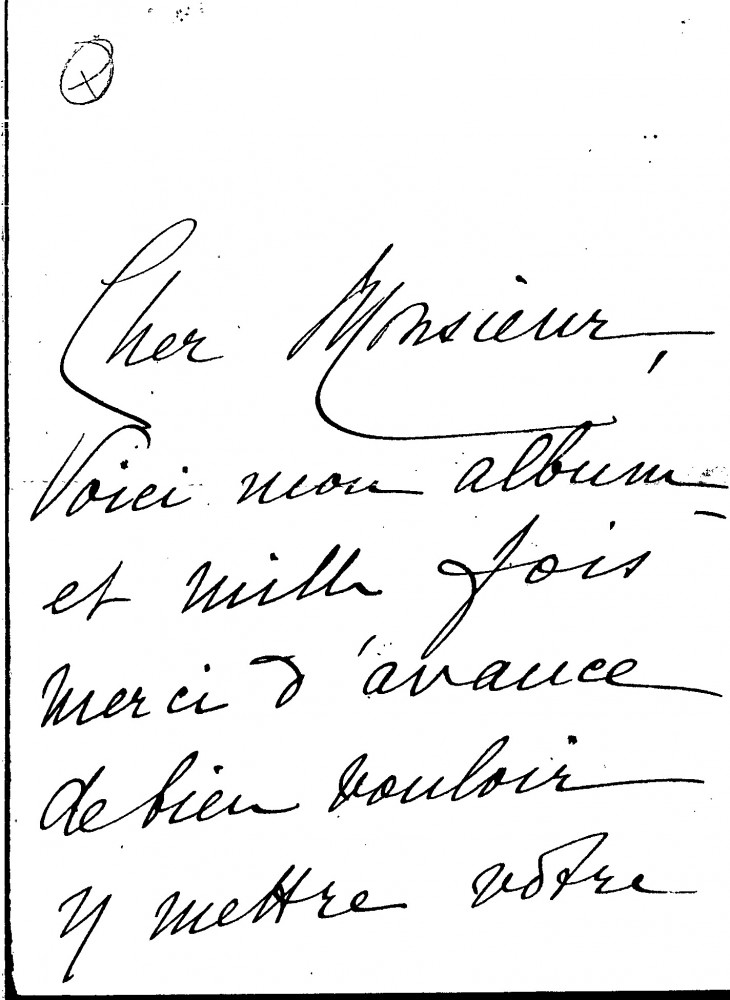 Cher Monsieur,
Voici mon album -
et mille fois
merci d'avance
de bien vouloir
y mettre vôtre